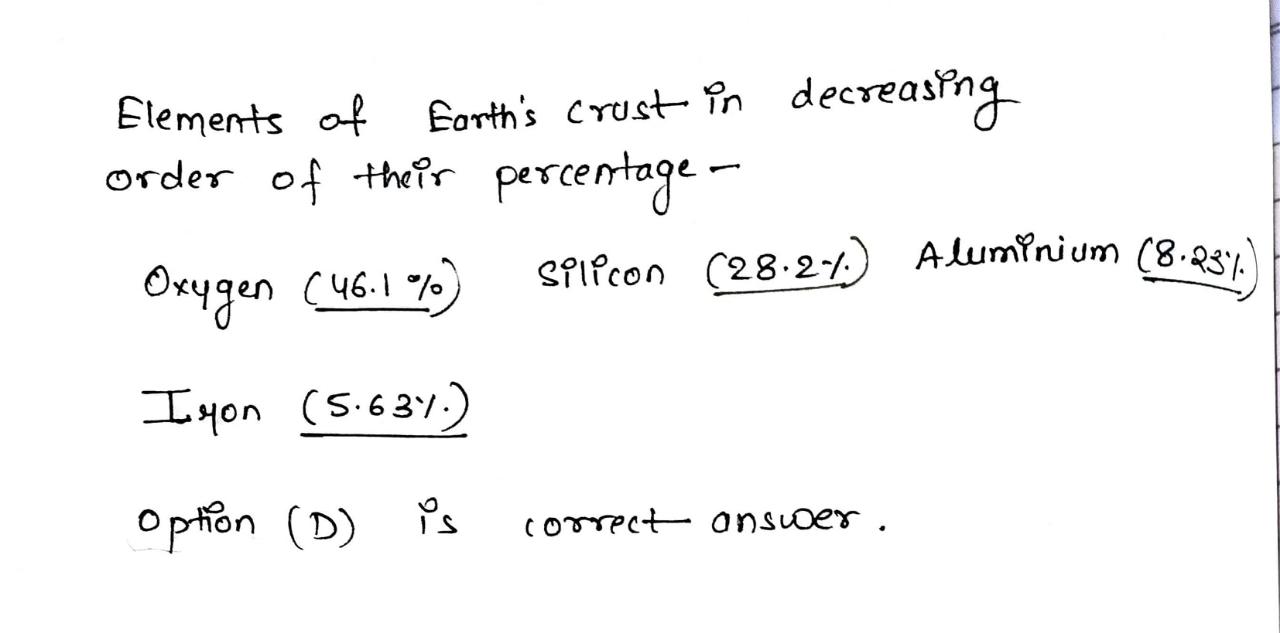 Elements of Earth's crust in decreasing
order of their percentage -
Oxygen (46.1 %) Silicon (28.2%) Aluminium (8.23%)
Iron (5.63%)
option (D) is correct answer.